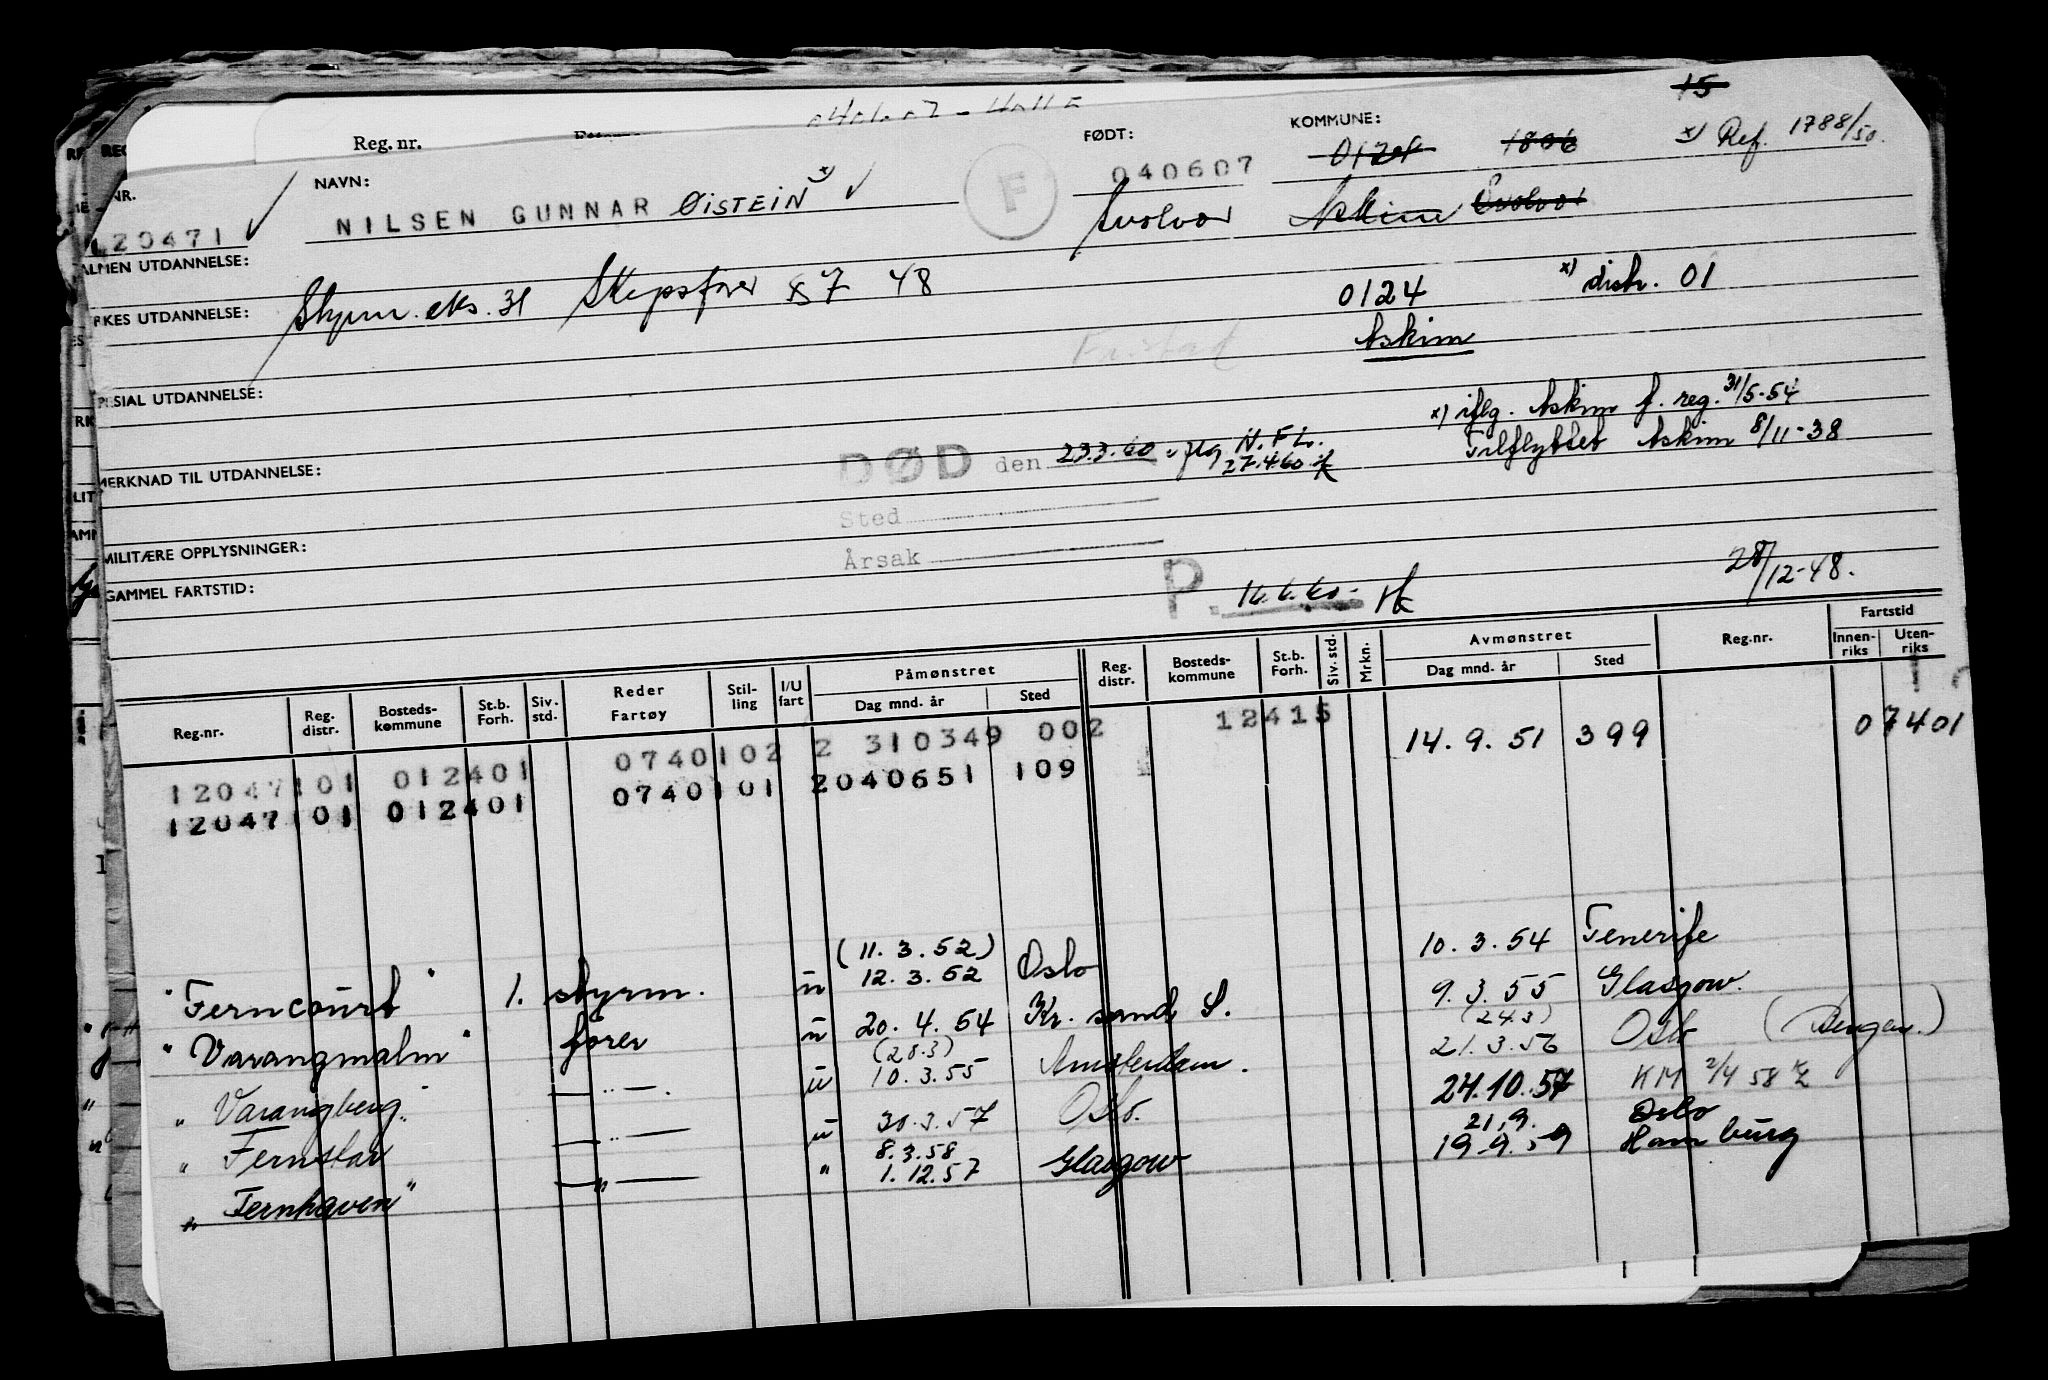 15
Reg. nr.
FØDT:
KOMMUNE:
x) Ref. 1788/50.
NR.
NAVN:
040607
0124
1806
NILSEN GUNNAR ØISTEIN x)
F
Svolvær Askim Svolvær
120471
ALMEN UTDANNELSE:
YRKES UTDANNELSE:
Styrm. eks. 31 Skipsfører 48
0124
x) distr. 01
Askim
SPESIAL UTDANNELSE:
x) iflg. Askim f. reg. 31/5-54
Tilflyttet Askim 8/11-38
DØD den 23.3.60 iflg N.F.L.
27.4.60
MERKNAD TIL UTDANNELSE:
Sted
MILITÆRE OPPLYSNINGER:
Årsak
28/12-48.
GAMMEL FARTSTID:
P. 16.6.60-
Reg.nr. Reg. distr. Bosteds-kommune St.b. Forh. Siv. std. Reder Fartøy Stil-ling I/U fart Påmønstret Dag mnd. år Sted Reg. distr. Bosteds-kommune St.b. Forh. Siv. std. Mrkn. Avmønstret Dag mnd. år Sted Reg.nr. Fartstid Innen-riks Uten-riks
12047101 012401 0740102 2 310349 002 12415 14.9.51 399 07401
12047101 012401 0740101 2040651 109
"Ferncourt" 1. styrm. u (11.3.52) 12.3.52 Oslo 10.3.54 Tenerife
"Varangmalm" fører u 20.4.54 Kr. sand S. 9.3.55 Glasgow.
"Varangberg" —"— u (28.3) 10.3.55 Amsterdam. (24.3) 21.3.56 Oslo (Bergen.)
"Fernstar —"— u 30.3.57 Oslo. 24.10.57 KM 2/4 58
"Fernhaven" —"— " 8.3.58 1.12.57 Glasgow 21.9. Oslo 19.9.59 Hamburg